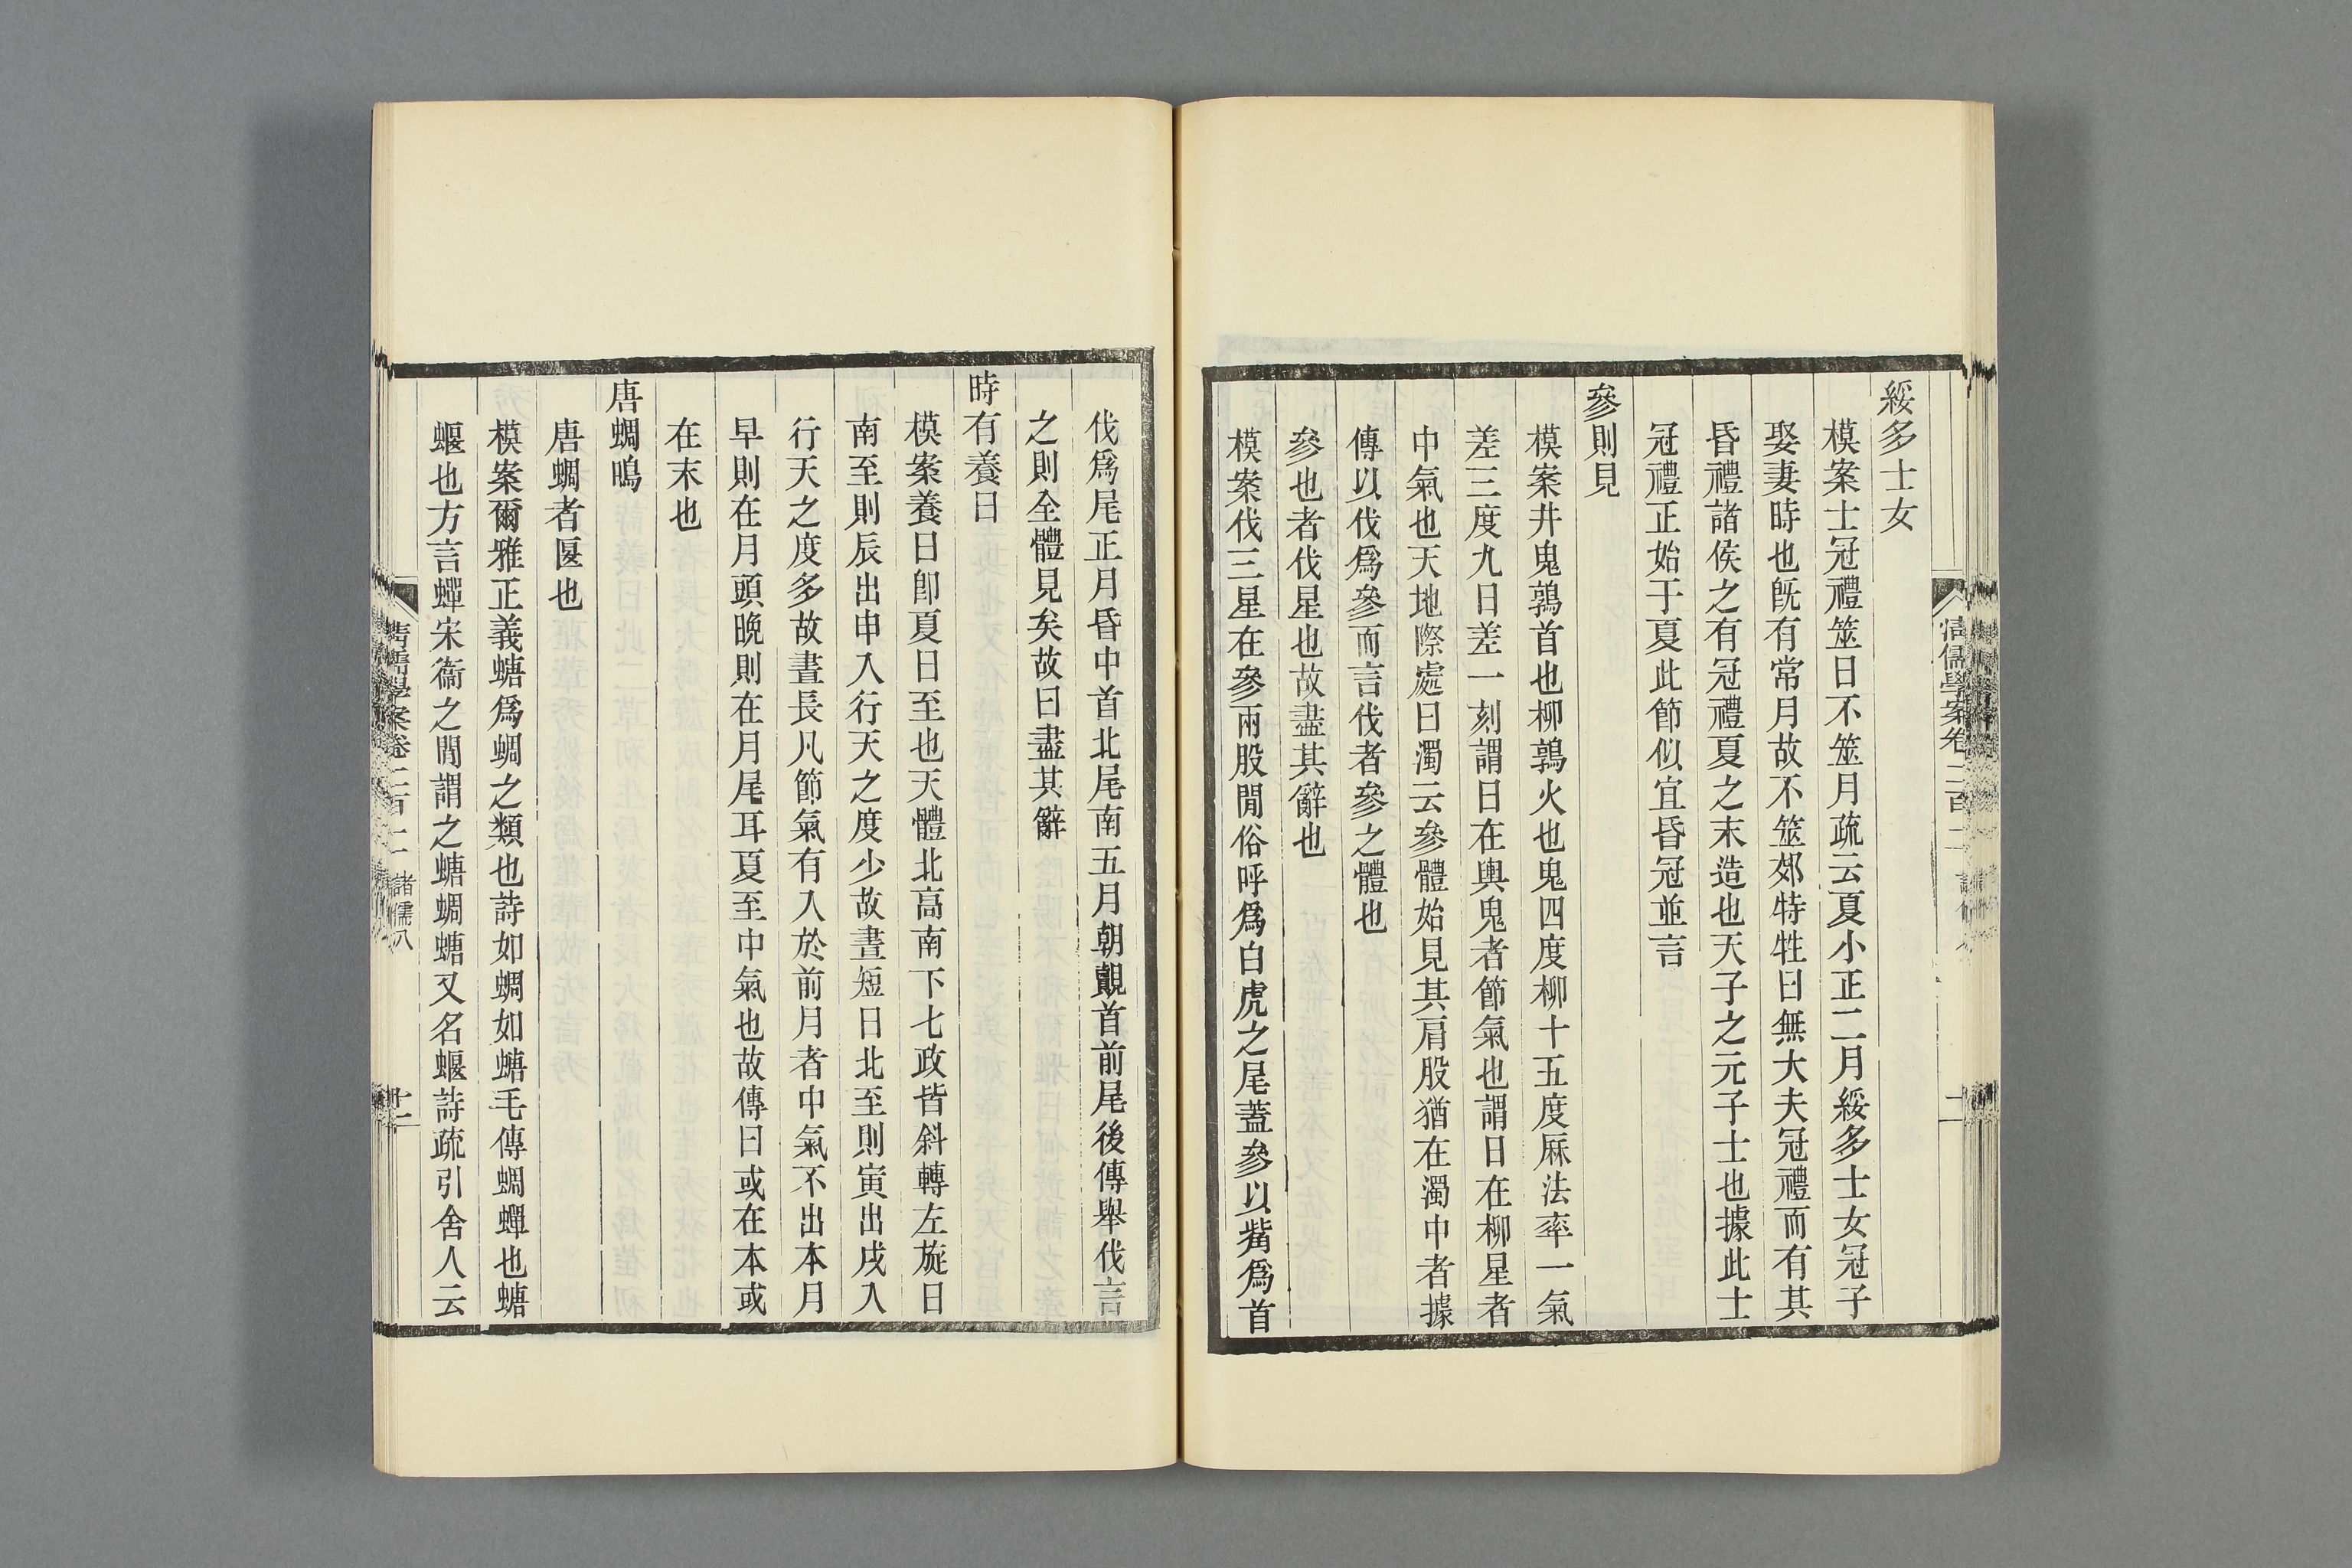 綏多士女
模案士冠禮筮日不筮月疏云夏小正二月綏多士女冠子
娶妻時也旣有常月故不筮郊特牲曰無大夫冠禮而有其
昏禮諸侯之有冠禮夏之末造也天子之元子士也據此士
冠禮正始于夏此節似宜昏冠並言
參則見
模案井鬼鶉首也柳鶉火也鬼四度柳十五度厤法率一氣
差三度九日差一刻謂日在輿鬼者節氣也謂日在柳星者
中氣也天地際處曰濁云參體始見其肩股猶在濁中者據
傳以伐爲參而言伐者參之體也
參也者伐星也故盡其辭也
模案伐三星在參兩股閒俗呼爲白虎之尾蓋參以觜爲首
伐爲尾正月昏中首北尾南五月朝覿首前尾後傳舉伐言
之則全體見矣故曰盡其辭
時有養日
模案養日卽夏日至也天體北高南下七政皆斜轉左旋日
南至則辰出申入行天之度少故晝短日北至則寅出戌入
行天之度多故晝長凡節氣有入於前月者中氣不出本月
早則在月頭晚則在月尾耳夏至中氣也故傳曰或在本或
在末也
唐蜩鳴
唐蜩者匽也
模案爾雅正義螗爲蜩之類也詩如蜩如螗毛傳蜩蟬也螗
蝘也方言蟬宋衞之閒謂之螗蜩螗又名蝘詩疏引舍人云
清儒學案卷二百二 諸儒八
十二